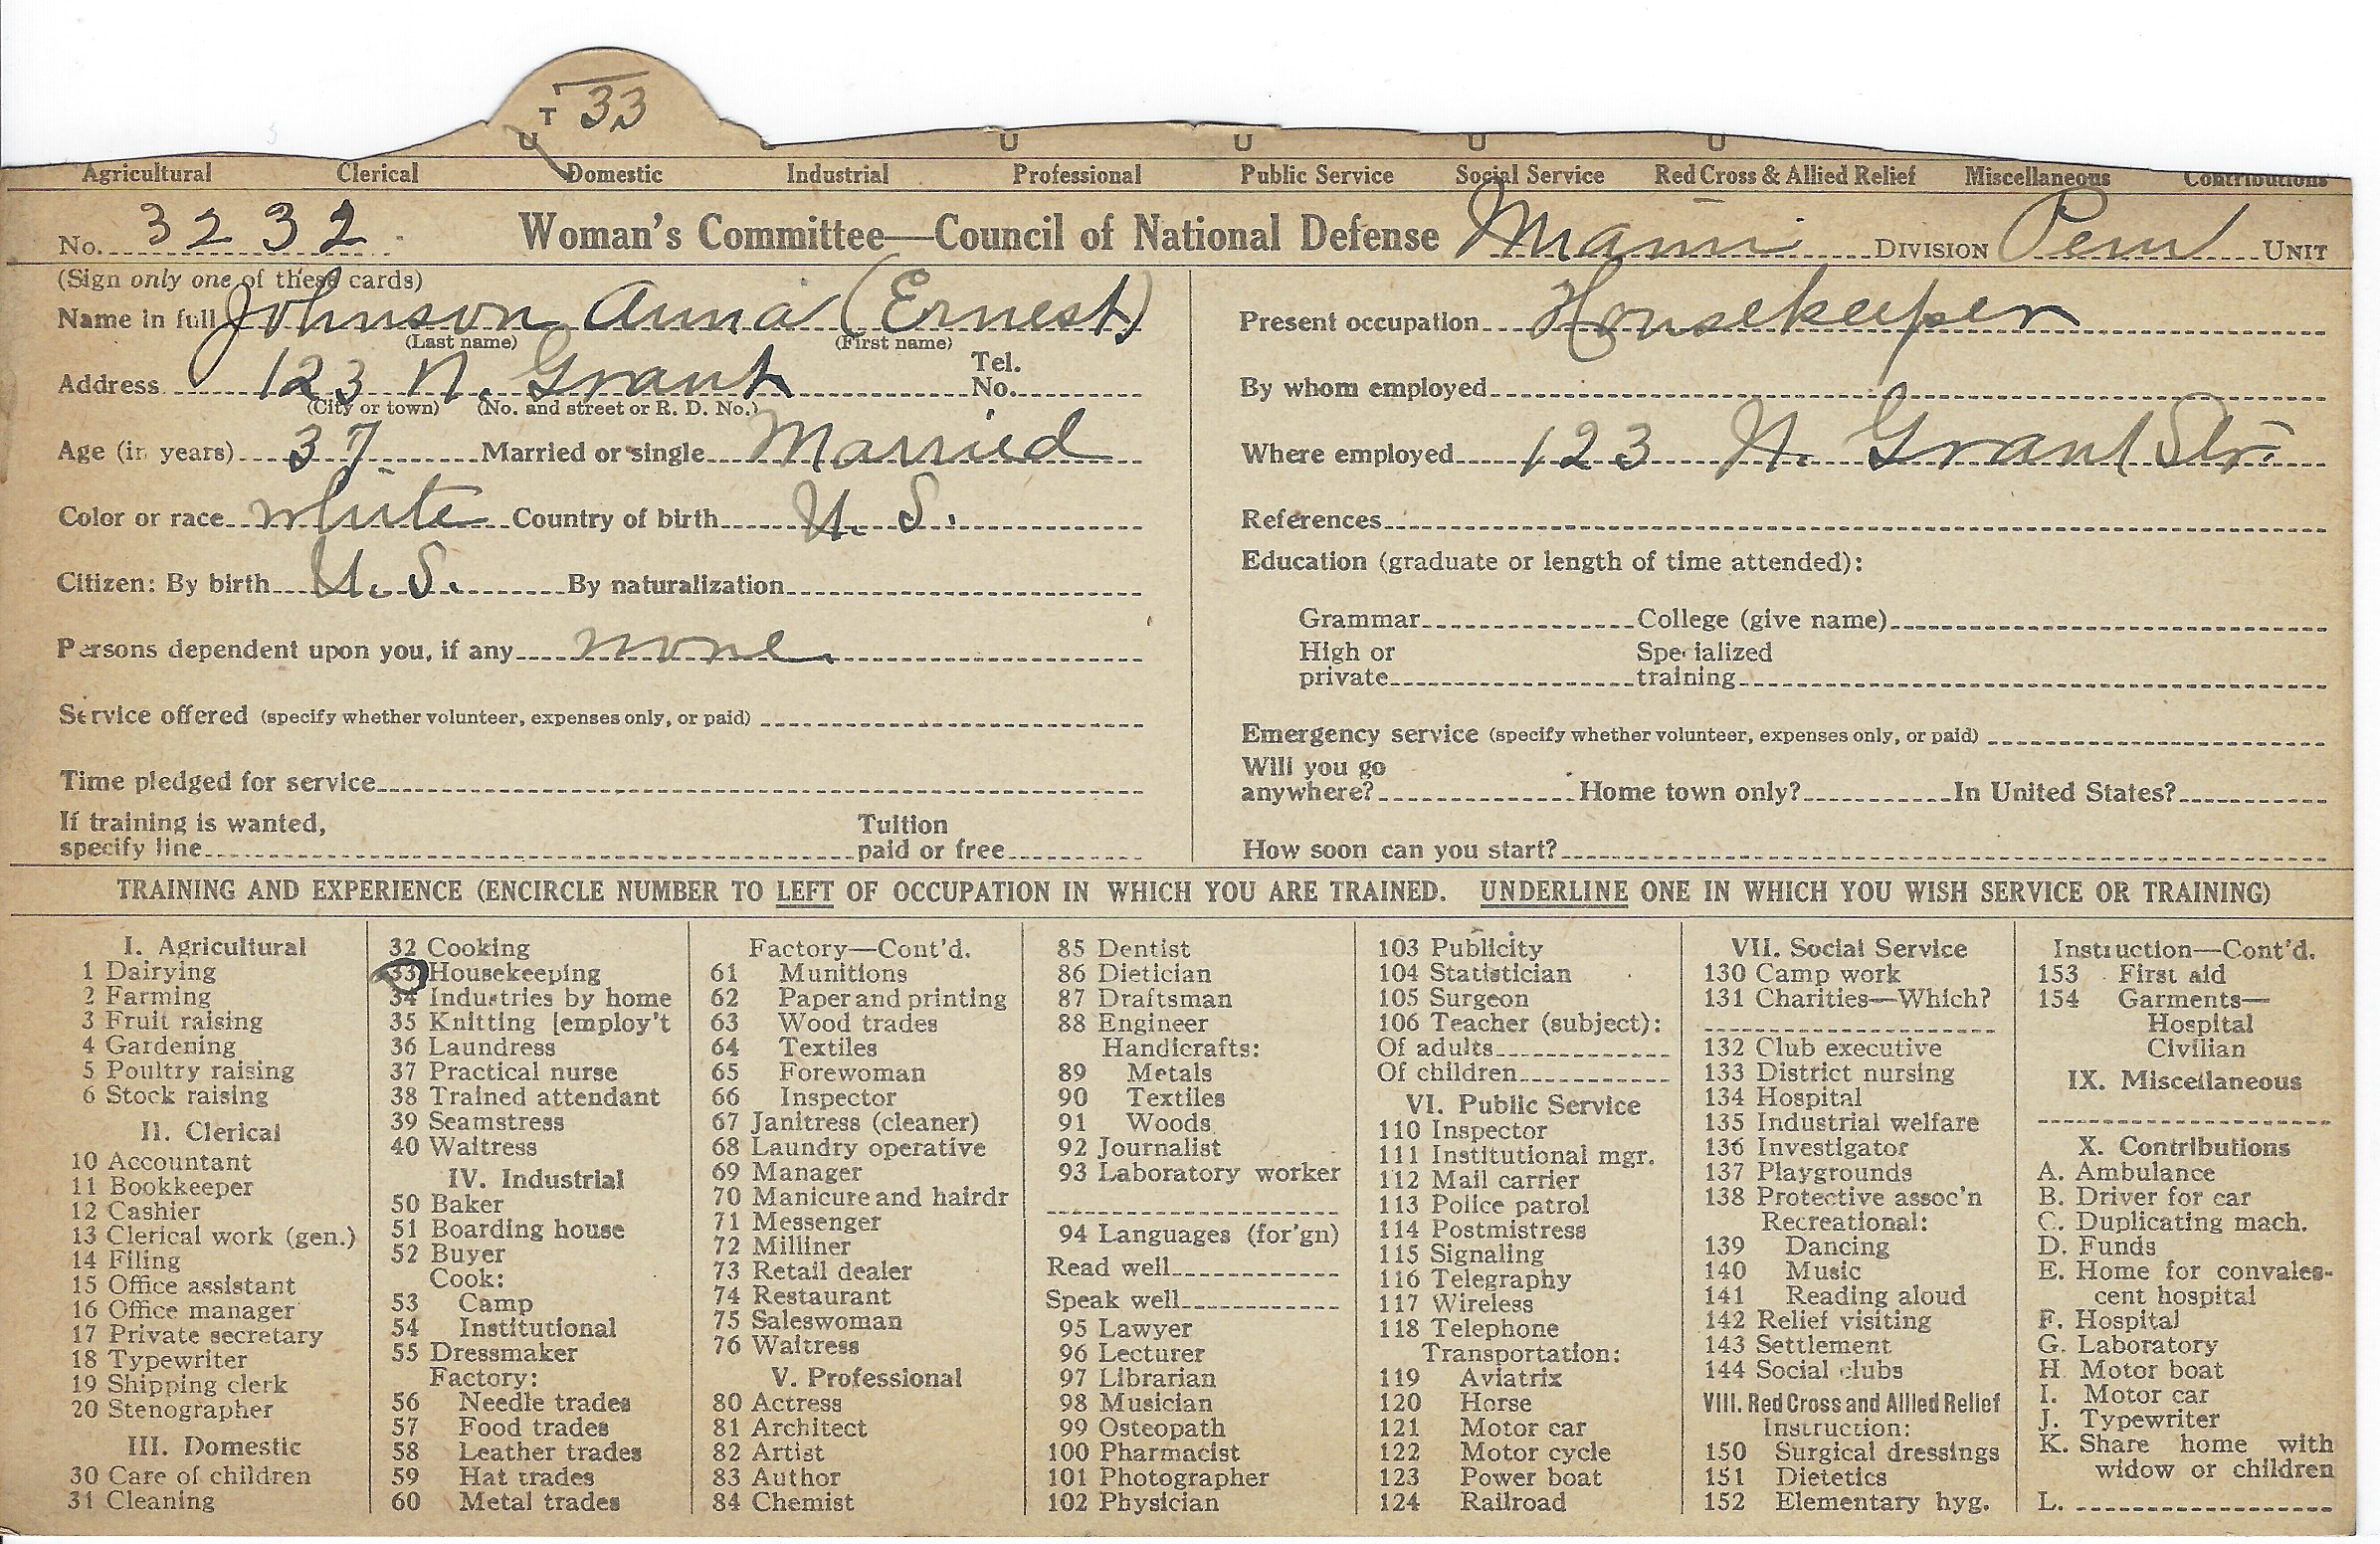 T 33
U U U U U
Agricultural Clerical Domestic Industrial Professional Public Service Social Service Red Cross & Allied Relief Miscellaneous Contributions
No. 3232 Woman's Committee—Council of National Defense Miami DIVISION Peru UNIT
(Sign only one of these cards)
Name in full Johnson Anna (Ernest)
(Last name) (First name)
Address 123 N. Grant Tel. No.
(City or town) (No. and street or R. D. No.)
Age (in years) 37 Married or single Married
Color or race white Country of birth U. S.
Citizen: By birth U. S. By naturalization
Persons dependent upon you, if any none
Service offered (specify whether volunteer, expenses only, or paid)
Time pledged for service
If training is wanted,
specify line Tuition paid or free
Present occupation Housekeeper
By whom employed
Where employed 123 N. Grant Str.
References
Education (graduate or length of time attended):
Grammar College (give name)
High or private Specialized training
Emergency service (specify whether volunteer, expenses only, or paid)
Will you go
anywhere? Home town only? In United States?
How soon can you start?
TRAINING AND EXPERIENCE (ENCIRCLE NUMBER TO LEFT OF OCCUPATION IN WHICH YOU ARE TRAINED. UNDERLINE ONE IN WHICH YOU WISH SERVICE OR TRAINING)
I. Agricultural
1 Dairying
2 Farming
3 Fruit raising
4 Gardening
5 Poultry raising
6 Stock raising
II. Clerical
10 Accountant
11 Bookkeeper
12 Cashier
13 Clerical work (gen.)
14 Filing
15 Office assistant
16 Office manager
17 Private secretary
18 Typewriter
19 Shipping clerk
20 Stenographer
III. Domestic
30 Care of children
31 Cleaning
32 Cooking
33 Housekeeping
34 Industries by home
35 Knitting [employ't
36 Laundress
37 Practical nurse
38 Trained attendant
39 Seamstress
40 Waitress
IV. Industrial
50 Baker
51 Boarding house
52 Buyer
Cook:
53 Camp
54 Institutional
55 Dressmaker
Factory:
56 Needle trades
57 Food trades
58 Leather trades
59 Hat trades
60 Metal trades
Factory—Cont'd.
61 Munitions
62 Paper and printing
63 Wood trades
64 Textiles
65 Forewoman
66 Inspector
67 Janitress (cleaner)
68 Laundry operative
69 Manager
70 Manicure and hairdr
71 Messenger
72 Milliner
73 Retail dealer
74 Restaurant
75 Saleswoman
76 Waitress
V. Professional
80 Actress
81 Architect
82 Artist
83 Author
84 Chemist
85 Dentist
86 Dietician
87 Draftsman
88 Engineer
Handicrafts:
89 Metals
90 Textiles
91 Woods
92 Journalist
93 Laboratory worker
94 Languages (for'gn)
Read well
Speak well
95 Lawyer
96 Lecturer
97 Librarian
98 Musician
99 Osteopath
100 Pharmacist
101 Photographer
102 Physician
103 Publicity
104 Statistician
105 Surgeon
106 Teacher (subject):
Of adults
Of children
VI. Public Service
110 Inspector
111 Institutional mgr.
112 Mail carrier
113 Police patrol
114 Postmistress
115 Signaling
116 Telegraphy
117 Wireless
118 Telephone
Transportation:
119 Aviatrix
120 Horse
121 Motor car
122 Motor cycle
123 Power boat
124 Railroad
VII. Social Service
130 Camp work
131 Charities—Which?
132 Club executive
133 District nursing
134 Hospital
135 Industrial welfare
136 Investigator
137 Playgrounds
138 Protective assoc'n
Recreational:
139 Dancing
140 Music
141 Reading aloud
142 Relief visiting
143 Settlement
144 Social clubs
VIII. Red Cross and Allied Relief
Instruction:
150 Surgical dressings
151 Dietetics
152 Elementary hyg.
Instruction—Cont'd.
153 First aid
154 Garments—
Hospital
Civilian
IX. Miscellaneous
X. Contributions
A. Ambulance
B. Driver for car
C. Duplicating mach.
D. Funds
E. Home for convales-
cent hospital
F. Hospital
G. Laboratory
H. Motor boat
I. Motor car
J. Typewriter
K. Share home with
widow or children
L.